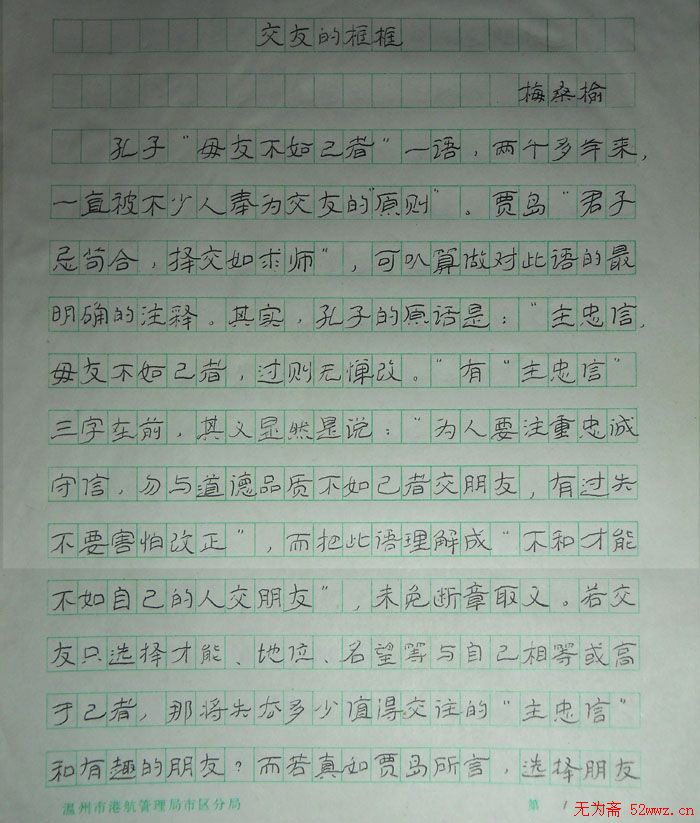 交友的框框
梅桑榆
孔子“毋友不如己者”一语，两千多年来，
一直被不少人奉为交友的“原则”。贾岛“君子
忌苟合，择交如求师”，可以算做对此语的最
明确的注释。其实，孔子的原话是：“主忠信，
毋友不如己者，过则无惮改。”有“主忠信”
三字在前，其义显然是说：“为人要注重忠诚
守信，勿与道德品质不如己者交朋友，有过失
不要害怕改正”，而把此语理解成“不和才能
不如自己的人交朋友”，未免断章取义。若交
友只选择才能、地位、名望等与自己相等或高
于己者，那将失去多少值得交往的“主忠信”
和有趣的朋友？而若真如贾岛所言，选择朋友
温州市港航管理局市区分局 第 1
无为斋 52wwz.cn